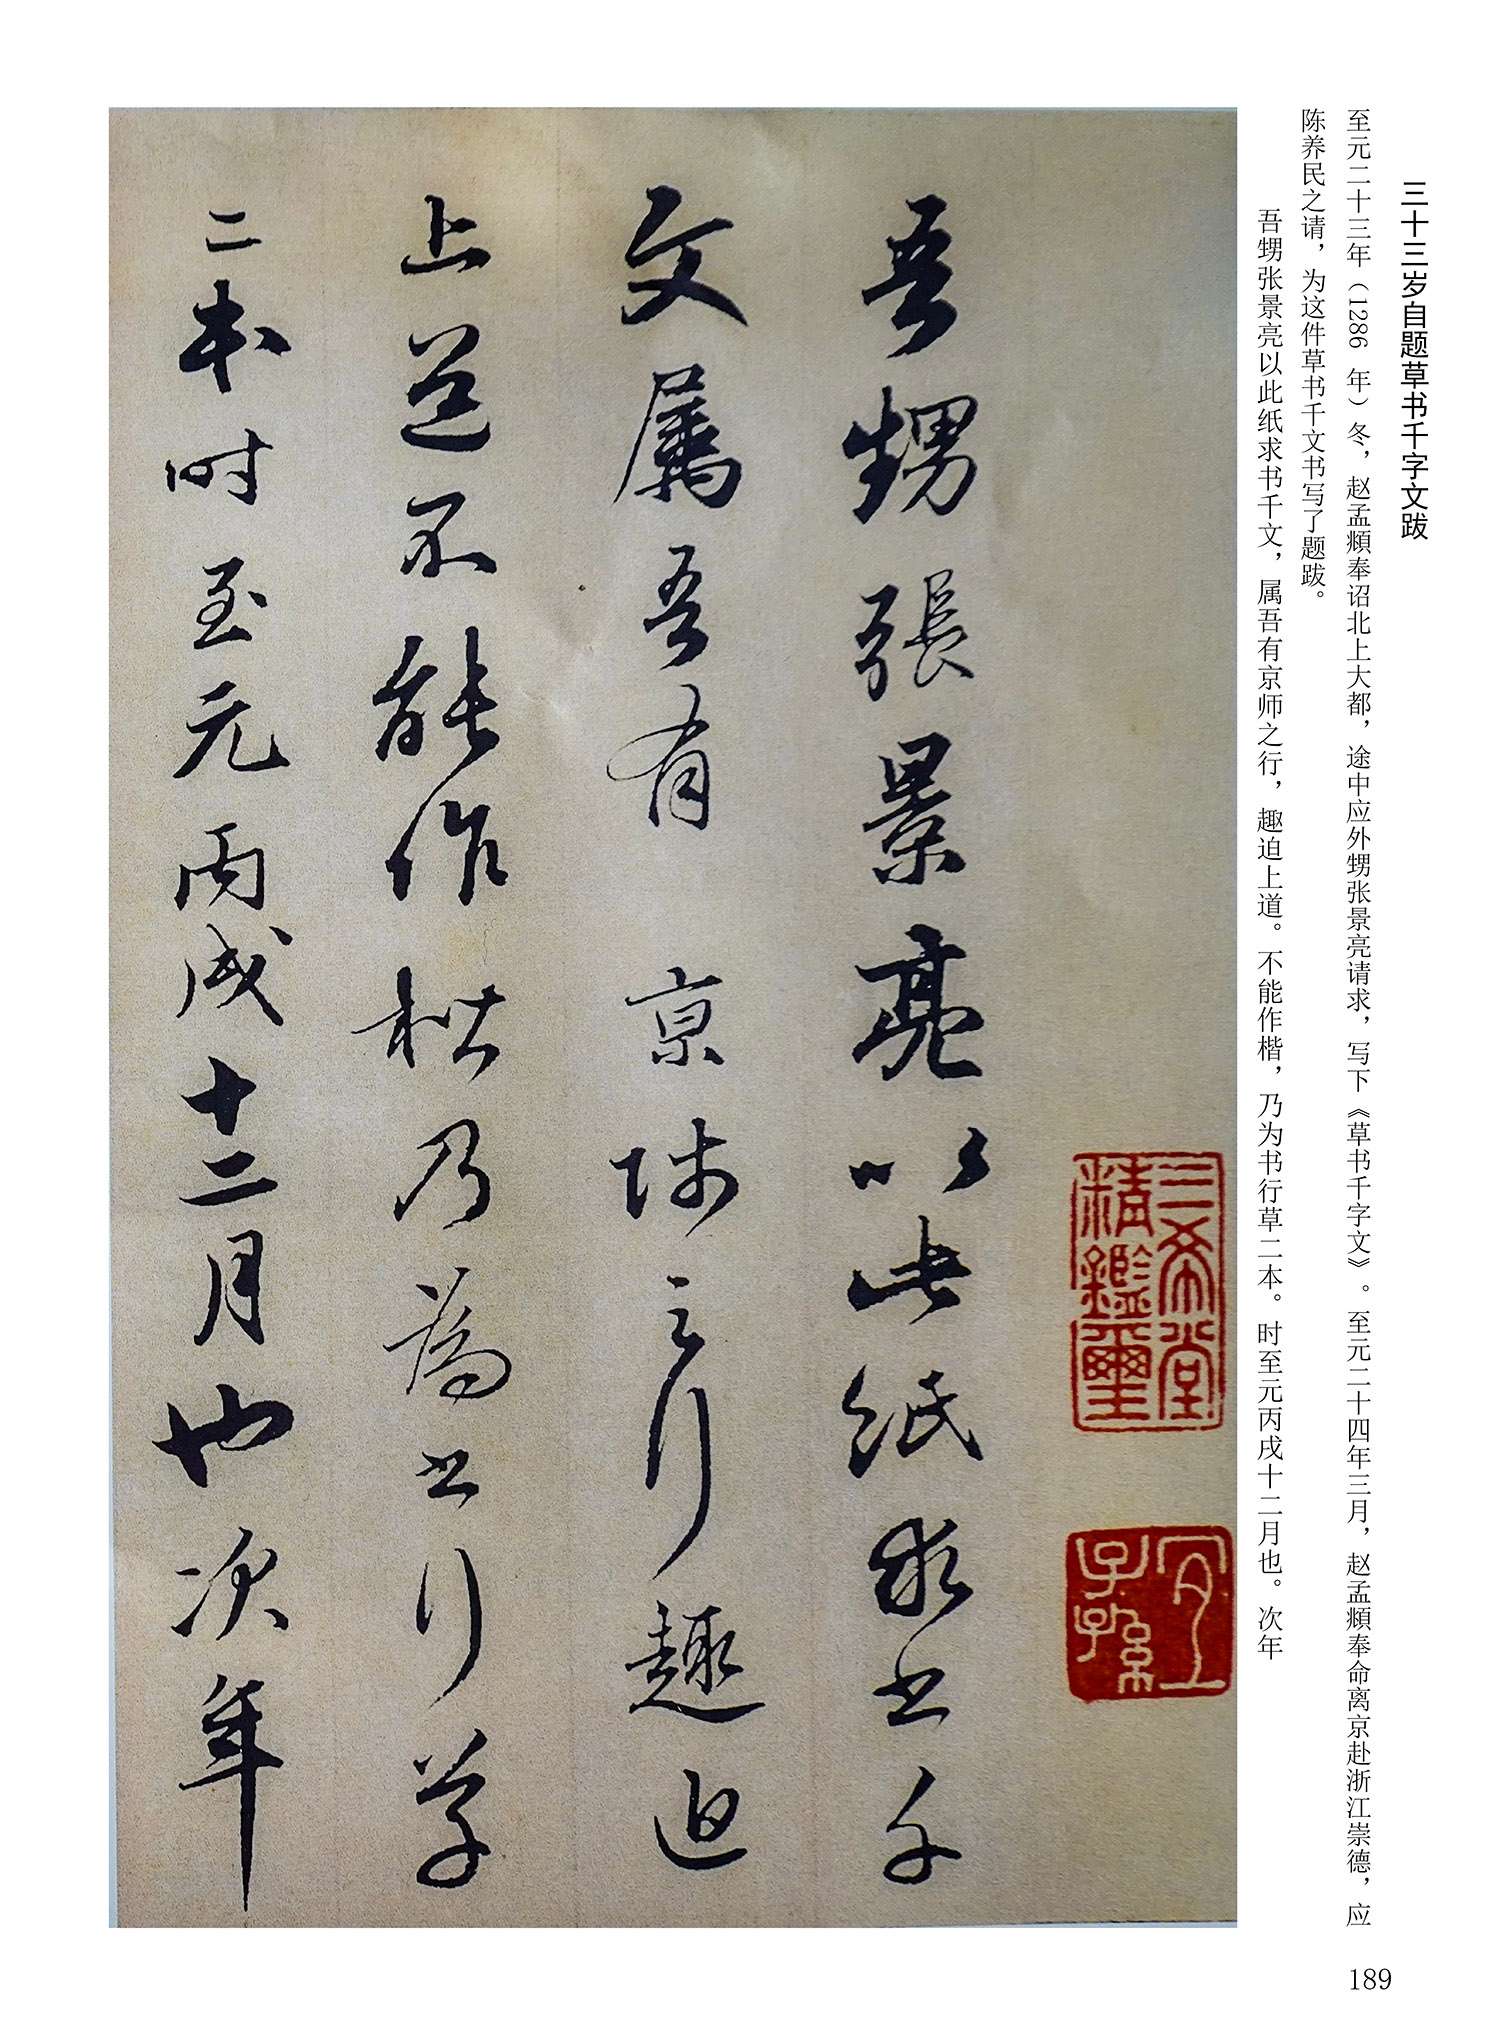 三十三岁自题草书千字文跋
至元二十三年（1286 年）冬，赵孟頫奉诏北上大都，途中应外甥张景亮请求，写下《草书千字文》。至元二十四年三月，赵孟頫奉命离京赴浙江崇德，应
陈养民之请，为这件草书千文书写了题跋。
吾甥张景亮以此纸求书千文，属吾有京师之行，趣迫上道。不能作楷，乃为书行草二本。时至元丙戌十二月也。次年
三希堂
精鑑璽
宜
子孫
吾甥張景亮以此紙求书千
文属吾有京师之行趣迫
上道不能作楷乃為书行草
二本时至元丙戌十二月也次年
189